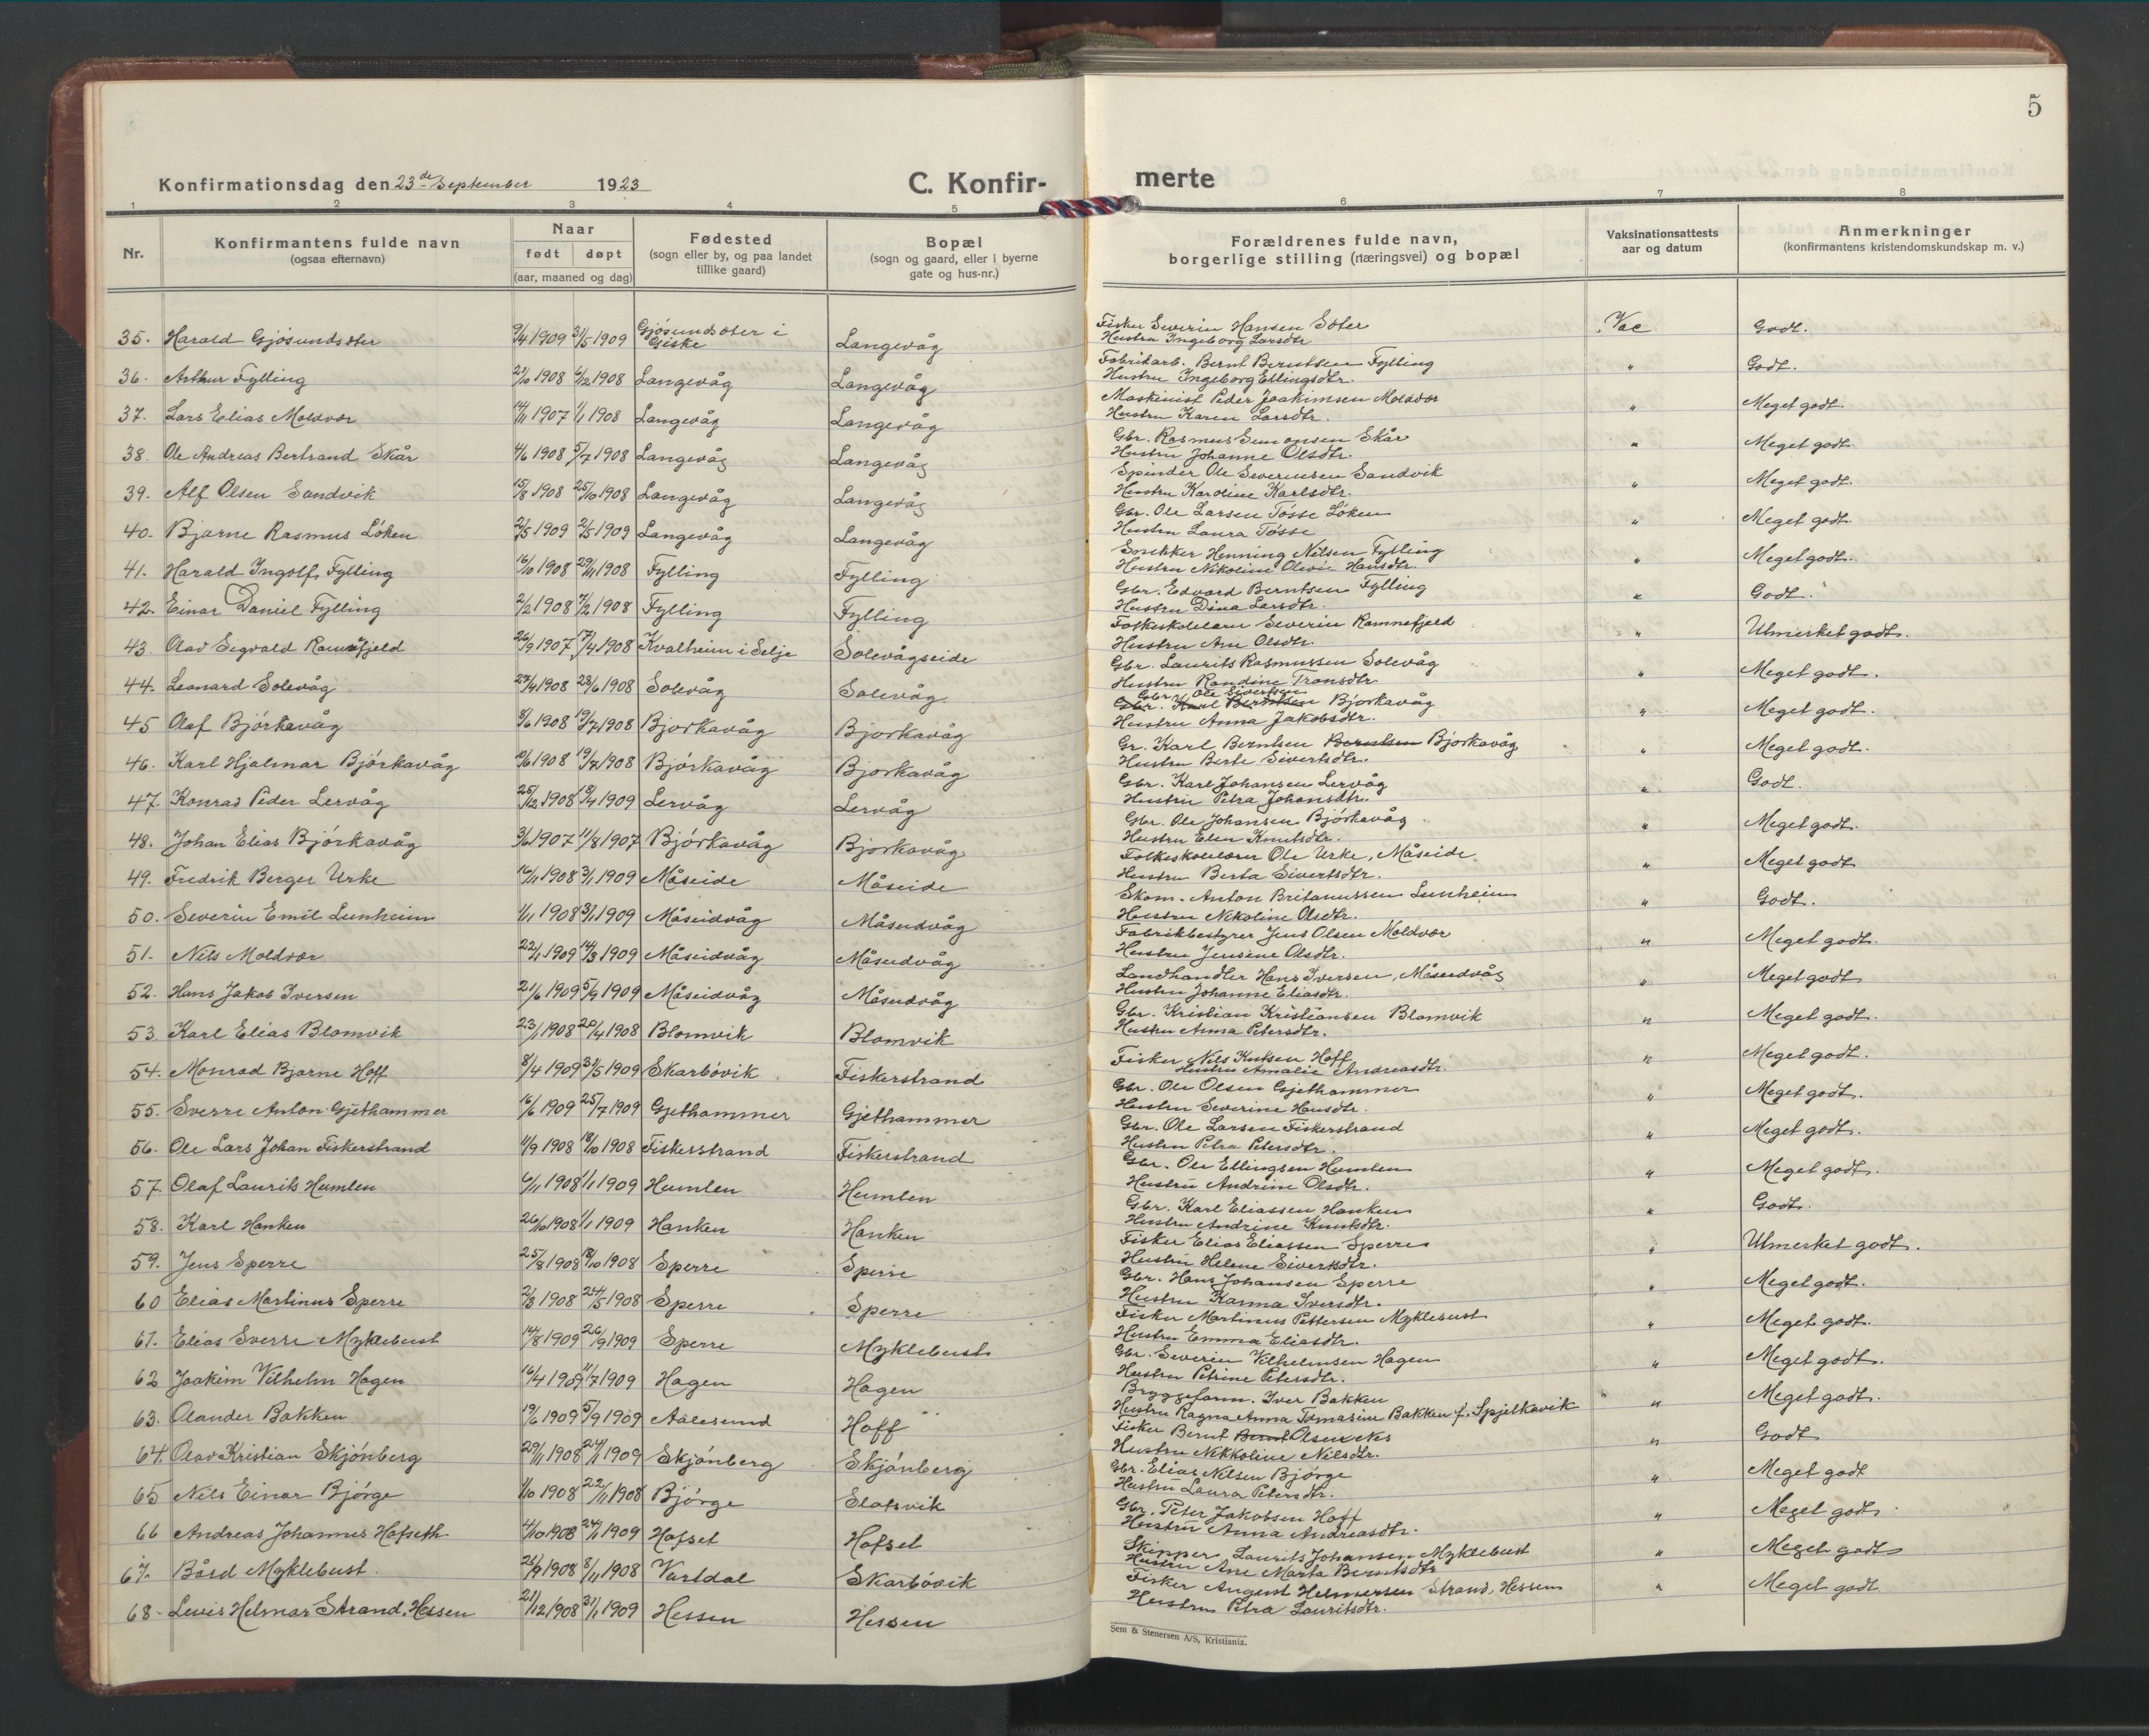 5
Konfirmationsdag den 23de September 1923
C. Konfir-
merte
1 2 3 4 5 6 7 8
Nr. Konfirmantens fulde navn (ogsaa efternavn) Naar født døpt (aar, maaned og dag) Fødested (sogn eller by, og paa landet tillike gaard) Bopæl (sogn og gaard, eller i byerne gate og hus-nr.) Forældrenes fulde navn, borgerlige stilling (næringsvei) og bopæl Vaksinationsattests aar og datum Anmerkninger (konfirmantens kristendomskundskap m. v.)
35. Harald Gjøsundsæter 9/4 1909 31/5 1909 Gjøsundsæter i Giske Langevåg Fisker Severin Hansen Sæter Hustru Ingeborg Larsdtr Vac Godt.
36. Arthur Fylling 21/10 1908 6/12 1908 Langevåg Langevåg Fabrikarb. Bernt Berntsen Fylling Hustru Ingeborg Ellingsdtr. " Godt.
37. Lars Elias Moldvær 14/11 1907 1/1 1908 Langevåg Langevåg Maskinist Peder Joakimsen Moldvær Hustru Karen Larsdtr. " Meget godt.
38. Ole Andreas Bertrand Skår 4/6 1908 5/7 1908 Langevåg Langevåg Gbr. Rasmus Simonsen Skår Hustru Johanne Olsdtr. " Meget godt.
39. Alf Olsen Sandvik 15/8 1908 25/10 1908 Langevåg Langevåg Spinder Ole Severinsen Sandvik Hustru Karoline Karlsdtr. " Meget godt.
40. Bjarne Rasmus Løken 2/5 1909 Langevåg Langevåg Gbr. Ole Larsen Tøsse Løken Hustru Laura Tøsse " Meget godt.
41. Harald Ingolf Fylling 16/10 1908 29/11 1908 Fylling Fylling Snekker Henning Nilsen Fylling Hustru Nikoline Olevie Hansdtr. " Meget godt.
42. Einar Daniel Fylling 2/2 1908 7/2 1908 Fylling Fylling Gbr. Edvard Berntsen Fylling Hustru Dina Larsdtr. " Godt.
43. Olav Sigvald Ramnefjeld 26/9 1907 17/4 1908 Kvalheim i Selje Solevågseide Folkeskolelærer Severin Ramnefjeld Hustru Ane Olsdtr. " Utmerket godt.
44. Leonard Solevåg 23/4 1908 28/6 1908 Solevåg Solevåg Gbr. Laurits Rasmussen Solevåg Hustru Randine Tronsdtr " Meget godt.
45 Olaf Bjørkavåg 8/6 1908 19/7 1908 Bjorkavåg Bjorkavåg Gbr. Ole Sivertsen Gbr. Karl Berntsen Bjorkavåg Hustru Anna Jakobsdtr. " Meget godt.
46. Karl Hjalmar Bjørkavåg 10/6 1908 19/7 1908 Bjørkavåg Bjorkavåg Gr. Karl Berntsen Berntsen Bjorkavåg Hustru Berte Sivertsdtr. " Meget godt.
47. Konrad Peder Lervåg 25/12 1908 18/4 1909 Lervåg Lervåg Gbr. Karl Johansen Lervåg Hustru Petra Johansdtr. " Godt.
48. Johan Elias Bjørkavåg 3/6 1907 11/8 1907 Bjørkavåg Bjorkavåg Gbr. Ole Johansen Bjørkavåg Hustru Elen Knutsdtr. " Meget godt.
49. Fredrik Berger Urke 16/11 1908 3/1 1909 Måseide Måseide Folkeskolelærer Ole Urke, Måseide Hustru Berta Sivertsdtr. " Meget godt
50. Severin Emil Lunheim 1/11 1908 3/1 1909 Måseidvåg Måseidvåg Skom. Anton Britanussen Lunheim Hustru Nikoline Olsdtr. " Godt.
51. Nils Moldvær 22/1 1909 14/3 1909 Måseidvåg Måseidvåg Fabrikbestyrer Jens Olsen Moldvær Hustru Jensine Olsdtr. " Meget godt.
52. Hans Jakob Iversen 21/6 1909 5/9 1909 Måseidvåg Måseidvåg Landhandler Hans Iversen, Måseidvåg Hustru Johanne Eliasdtr. " Meget godt
53. Karl Elias Blomvik 23/1 1908 20/4 1908 Blomvik Blomvik Gbr. Kristian Kristiansen Blomvik Hustru Anna Petersdtr. " Meget godt.
54. Monrad Bjarne Hoff 8/4 1909 31/5 1909 Skarbøvik Fiskerstrand Fisker Nils Knutsen Hoff Hustru Amalie Andreasdtr. " Meget godt.
55. Sverre Anton Gjethammer 16/6 1909 25/7 1909 Gjethammer Gjethammer Gbr. Ole Olsen Gjethammer Hustru Severine Hansdtr. " Meget godt.
56. Ole Lars Johan Fiskerstrand 11/9 1908 18/10 1908 Fiskerstrand Fiskerstrand Gbr. Ole Larsen Fiskerstrand Hustru Petra Petersdtr. " Meget godt.
57. Olaf Laurits Humlen 6/11 1908 1/1 1909 Humlen Humlen Gbr. Ole Ellingsen Humlen Hustru Andrine Olsdtr. " Meget godt.
58. Karl Hanken 26/10 1908 1/1 1909 Hanken Hanken Gbr. Karl Eliassen Hanken Hustru Andrine Knutsdtr. " Godt.
59. Jens Sperre 25/8 1908 18/10 1908 Sperre Sperre Fisker Elias Eliassen Sperre Hustru Helene Sivertsdtr. " Utmerket godt.
60 Elias Martinus Sperre 2/3 1908 24/5 1908 Sperre Sperre Gbr. Hans Johansen Sperre Hustru Karina Iversdtr. " Meget godt.
61. Elias Sverre Myklebust 14/8 1909 26/9 1909 Sperre Myklebust Fisker Martinus Pettersen Myklebust Hustru Emma Eliasdtr. " Meget godt.
62 Joakim Vilhelm Hagen 16/4 1909 11/7 1909 Hagen Hagen Gbr. Severin Vilhelmsen Hagen Hustru Petrine Petersdtr. " Meget godt.
63. Olander Bakken 19/6 1909 5/9 1909 Aalesund Hoff Bryggeform. Iver Bakken Hustru Ragna Anna Tomasine Bakken f. Spjelkavik " Meget godt.
64. Olav Kristian Skjønberg 29/11 1908 24/1 1909 Skjønberg Skjønberg Fisker Bernt Bernt Olsen Nes Hustru Nikkoline Nilsdtr. " Godt
65 Nils Einar Bjørge 1/10 1908 22/11 1908 Bjørge Slatsvik Gbr. Elias Nilsen Bjørge Hustru Laura Petersdtr. " Meget godt
66 Andreas Johannes Hofseth 4/10 1908 24/1 1909 Hofset Hofset Gbr. Peter Jakobsen Hoff Hustru Anna Andreasdtr. " Meget godt
67. Bård Myklebust 25/9 1908 8/11 1908 Vartdal Skarbøvik Skipper Laurits Johansen Myklebust Hustru Ane Marta Berntsdtr " Meget godt
68. Levis Helmar Strand, Hessen 21/12 1908 31/1 1909 Hessen Hessen Fisker August Helmersen Strand, Hessen Hustru Petra Lauritsdtr. " Meget godt
Sem & Stenersen A/S, Kristiania.